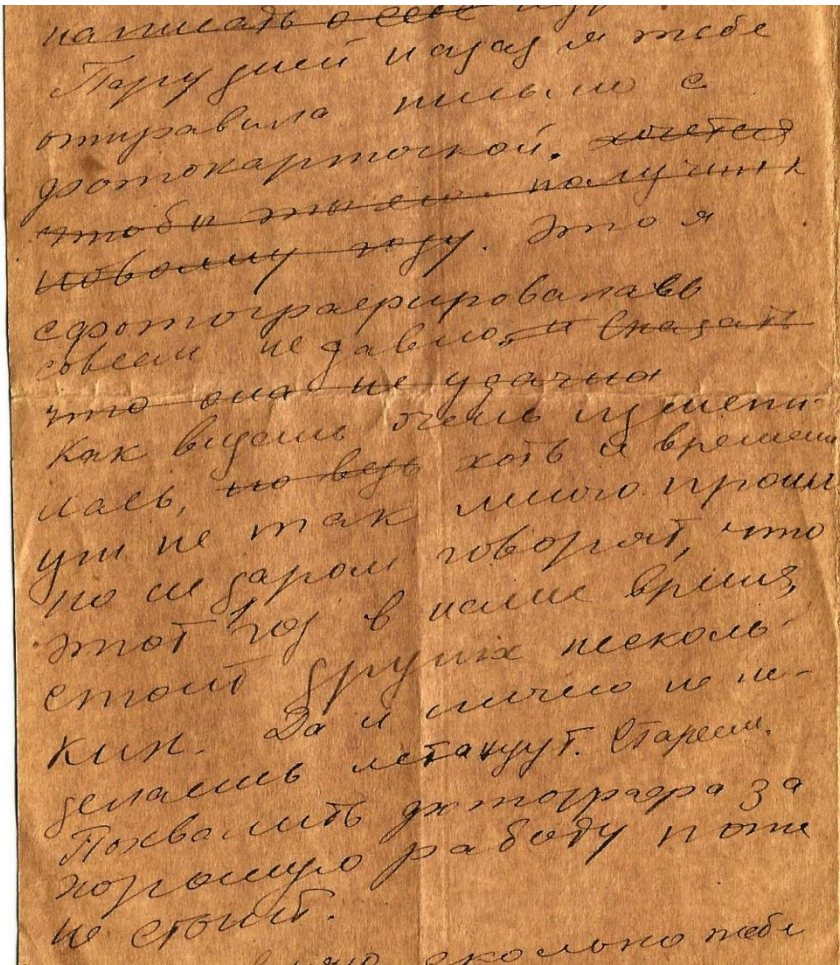 написать о себе
Пару дней назад я тебе
отправила письмо с
фотокарточкой. хочется
чтобы ты его получил к
новому году. Это я
сфотографировалась
совсем недавно, и сказать
что она не удачна
Как видишь очень измени-
лась, но ведь хоть и времени
уж не так много прошло
но не даром говорят, что
этот год в наше время,
стоит других несколь-
ких. Да и ничего не по-
делаешь лета идут. Стареем.
Похвалить фотографа за
хорошую работу тоже
не стоит.
сколько тебе